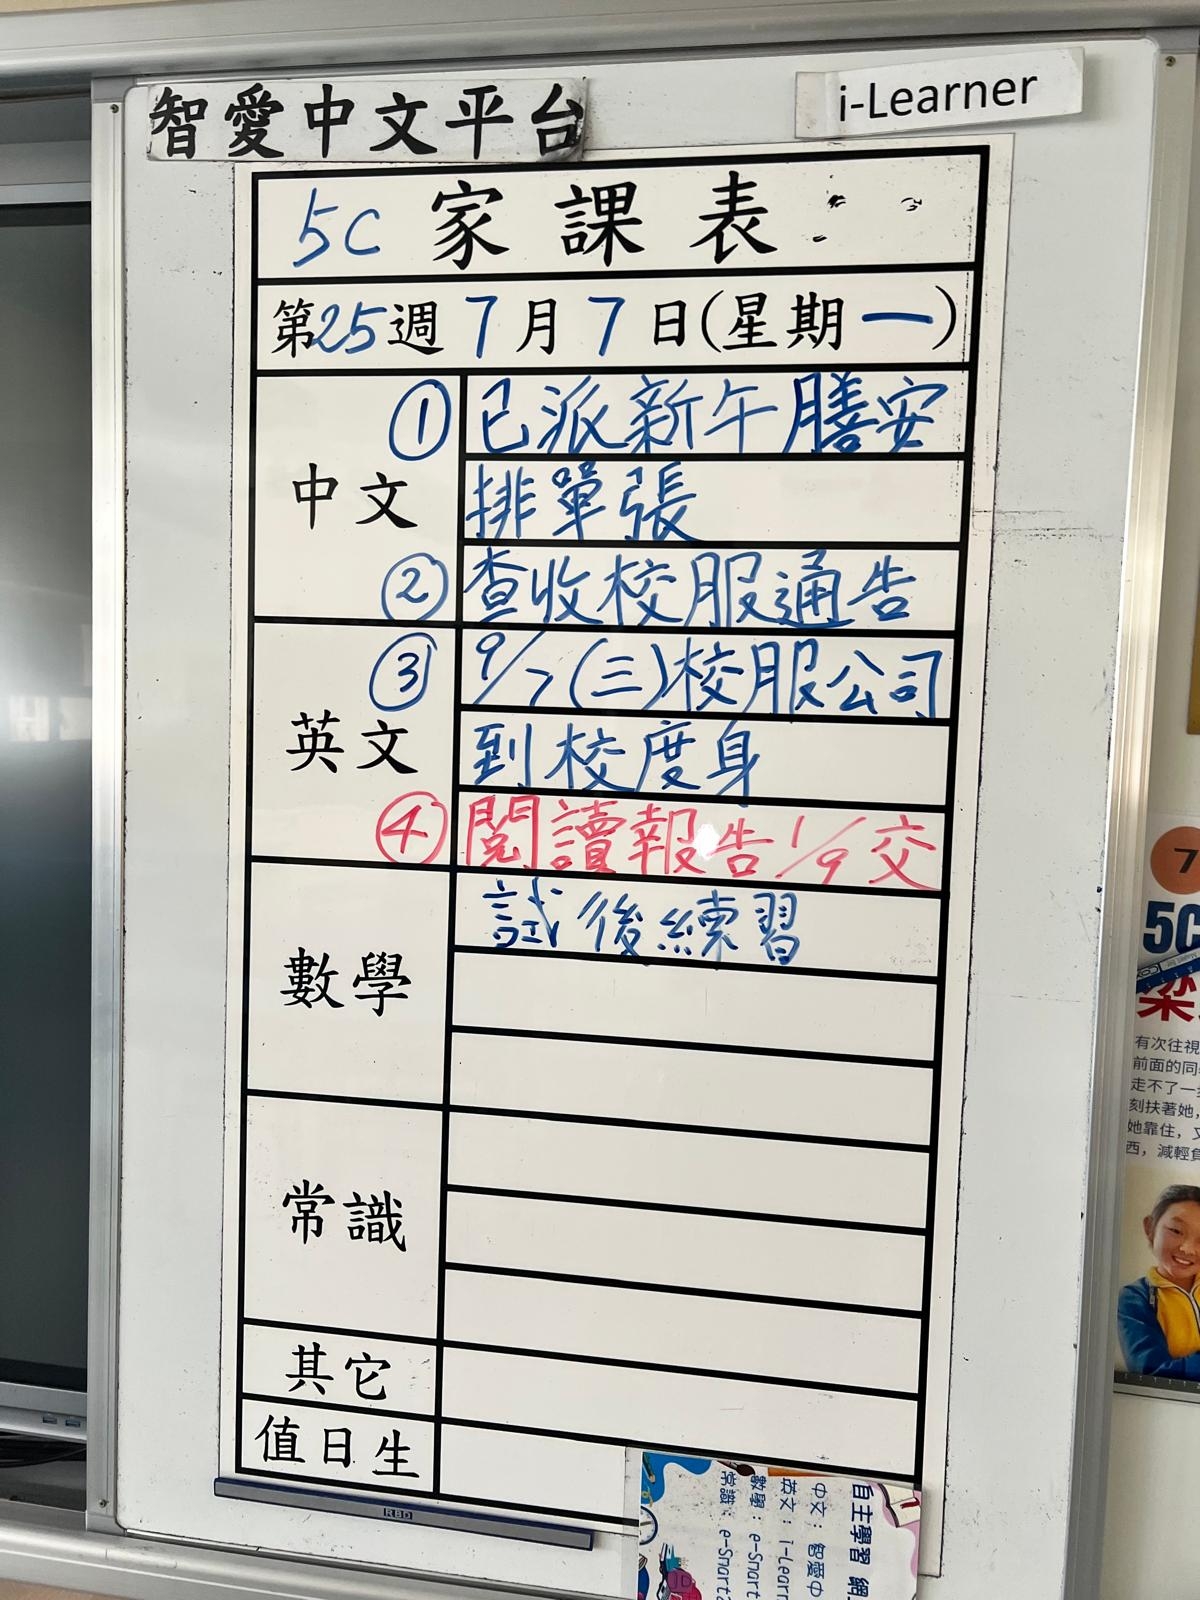 智愛中文平台
i-Learner
5C 家課表
第25週 7月7日(星期一)
中文
① 已派新午膳安
排單張
② 查收校服通告
英文
③ 9/7(三)校服公司
到校度身
④ 閱讀報告1/9交
數學
試後練習
常識
其它
值日生
RBD
自主學習 網
中文：智愛中
英文：i-Learn
數學：e-Smart
常識：e-Smart
7
5C
梁
有次往視
前面的同
走不了一
刻扶著她，
她靠住，
西，減輕